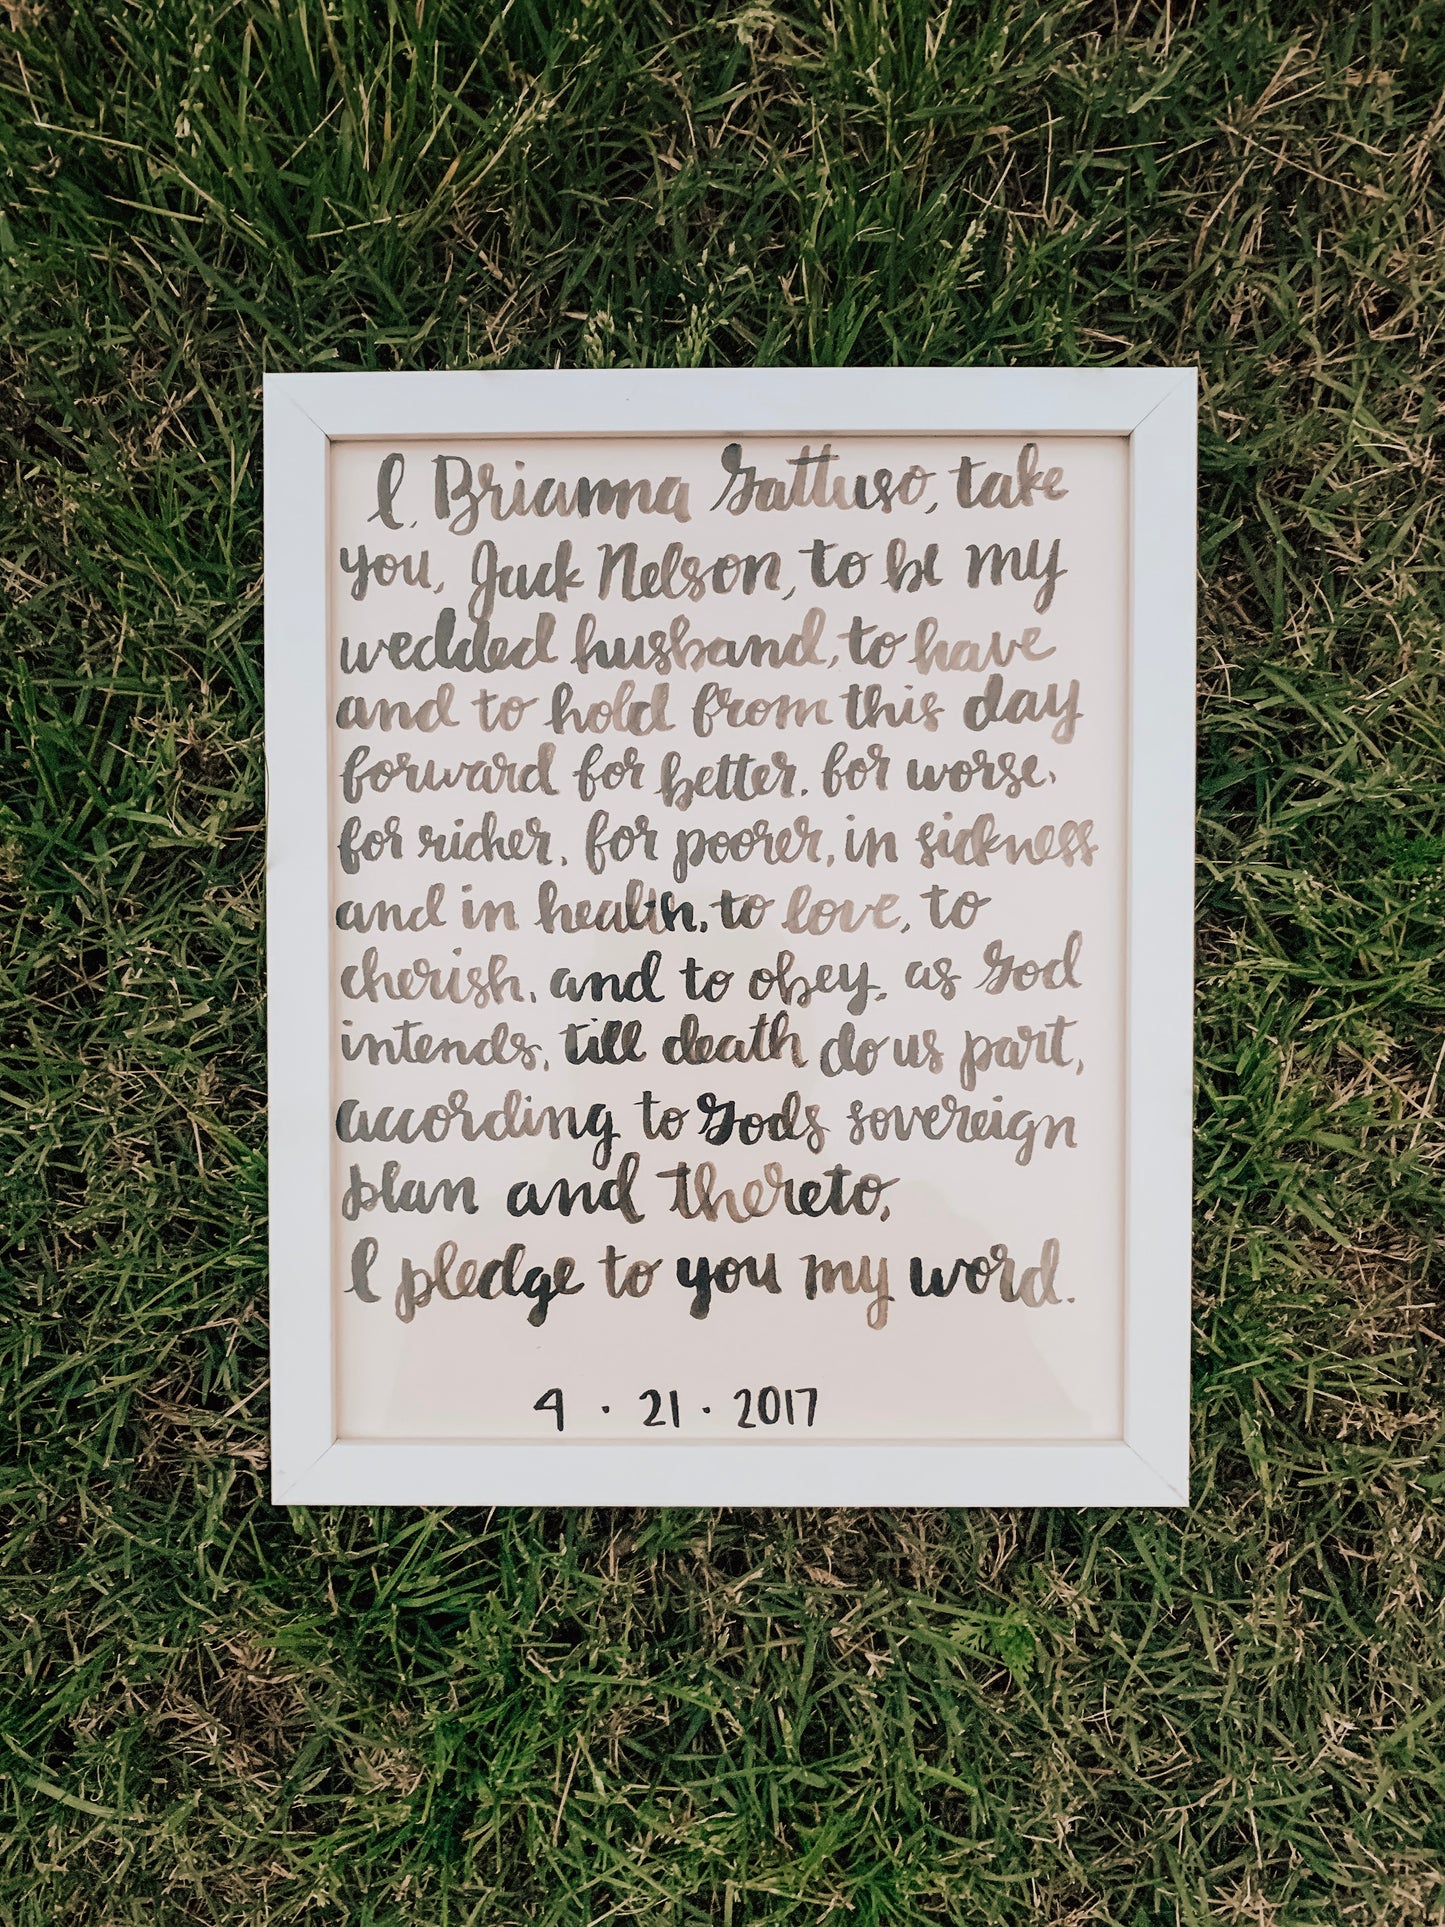 I, Brianna Gattuso, take
you, Jack Nelson, to be my
wedded husband, to have
and to hold from this day
forward for better, for worse,
for richer, for poorer, in sickness
and in health, to love, to
cherish, and to obey, as God
intends, till death do us part,
according to Gods sovereign
plan and thereto,
I pledge to you my word.
4 · 21 · 2017